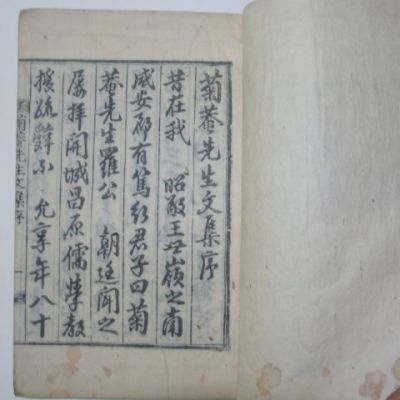 菊菴先生文集序
昔在我 昭敬王世嶺之南
咸安郡有篤行君子曰菊
菴先生羅公 朝廷聞之
屢拜開城昌原儒學教
授疏辭不 允享年八十
菊菴先生文集序 一